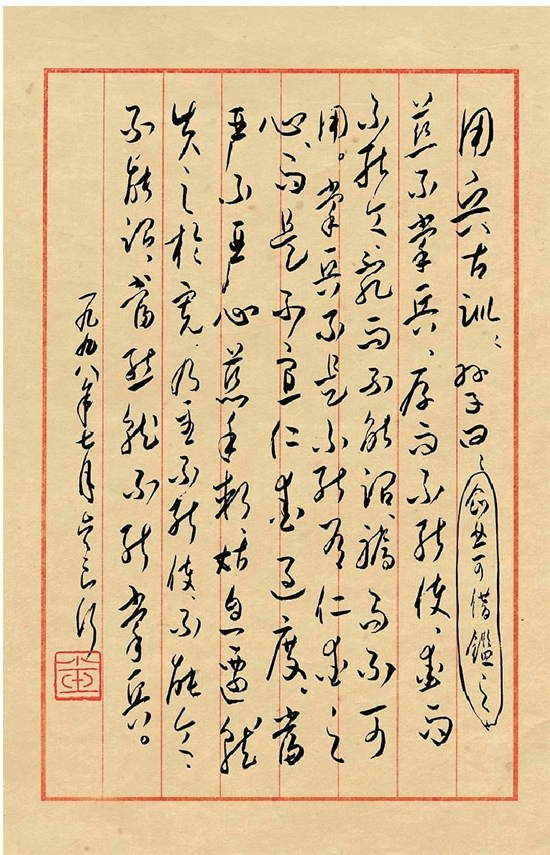 用兵古训：孙子曰：创业可借鑑之
慈不掌兵，厚而不能使，爱而
不能令，乱而不能治，骄而不可
用。掌兵不是不能有仁爱之
心，而是不宜仁爱过度，当
严不严，心慈手软，姑息迁就
失之於宽，乃至不能使，不能令，
不能治，当然就不能掌兵。
一九九八年七月